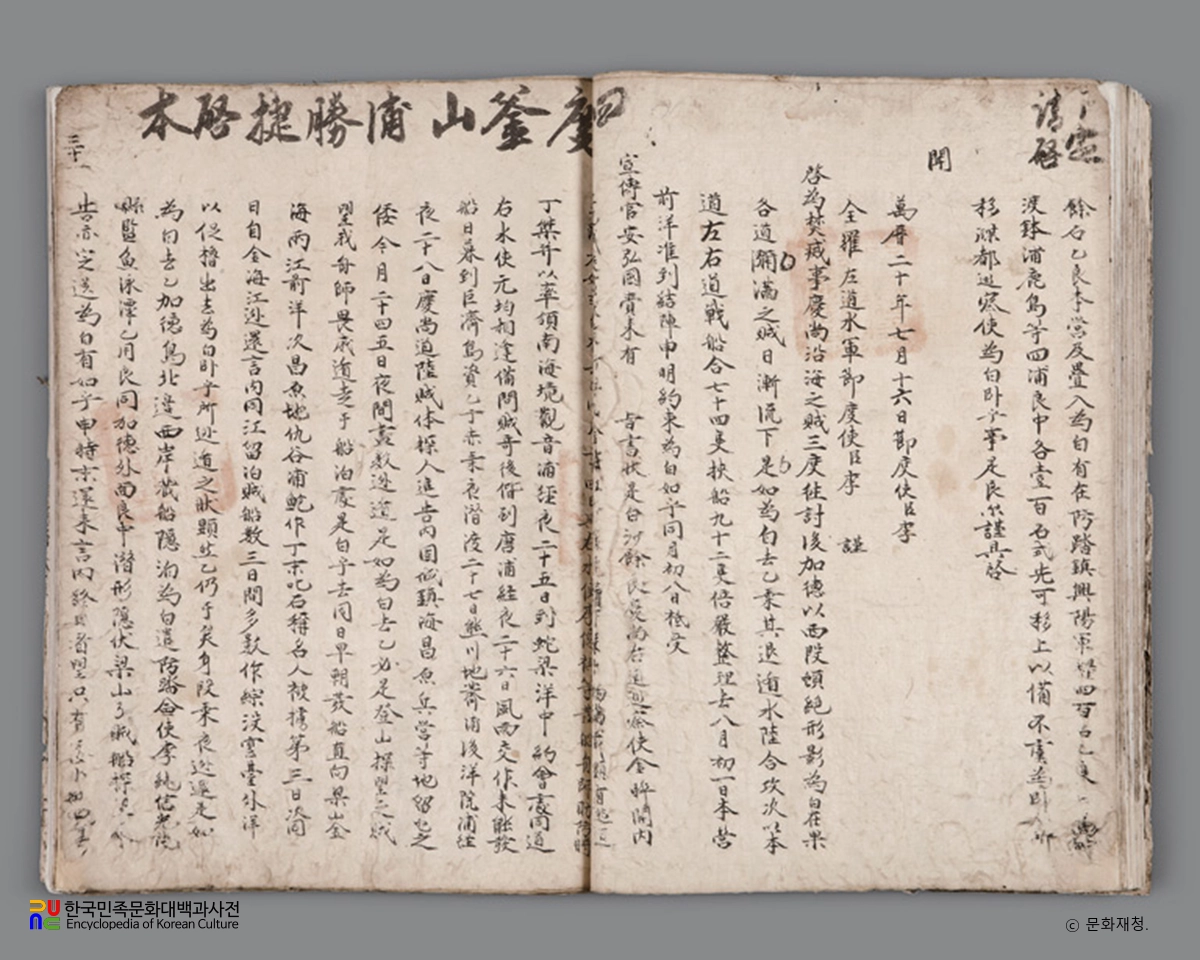 請啓
餘石乙良本營及疊入為白有在防踏鎭興陽軍
渡鉢浦鹿島等四浦良中各壹百石式先可移上以備不虞為白
移牒都巡察使為白臥乎事是良尔謹具啓
開
萬曆二十年七月十六日節度使臣李
全羅左道水軍節度使臣李 謹
啓為焚滅事慶尚沿海之賊三度往討後加德以西段頓絶形影為白在果
各道彌滿之賊日漸流下是如為白去乙乘其退遁水陸合攻次以本
道左右道戰船合七十四隻挾船九十二隻倍嚴整理去八月初一日本營
前洋准到結陣申明約束為白如乎同月初八日祗受
宣傳官安弘國賫來有
旨書狀是白沙餘良慶尚右道巡察使金睟關內
四度釜山浦勝捷啓本
丁傑幷以率領南海境觀音浦經夜二十五日到蛇梁洋中約會處同道
右水使元均相逢備問賊奇後偕到唐浦經夜二十六日風雨交作未能發
船日暮到巨濟島資乙于赤乘夜潛渡二十七日熊川地薺浦後洋院浦經
夜二十八日慶尚道陸賊体探人進告內固城鎭海昌原兵營等地留屯之
倭今月二十四五日夜間盡數逃遁是如為白去乙必是登山探望之賊
望我舟師畏威遁走于船泊處是白乎去同日早朝發船直向梁山金
海兩江前洋次昌原地仇谷浦鮑作丁末叱石稱名人被擄第三日次同
日自金海江逃還言內同江留泊賊船數三日間多數作綜沒雲臺外洋
以促櫓出去為白臥乎所逃遁之狀顯然乙仍于矣身段乘夜逃還是如
為白去乙加德島北邊西岸藏船隱泊為白遣防踏僉使李純信光陽
縣監魚泳潭乙用良同加德外面良中潛形隱伏梁山了賊船探
告亦定送為白有如乎申時末還來言內終日看望只有
三十一
한국민족문화대백과사전
Encyclopedia of Korean Culture
ⓒ 문화재청.